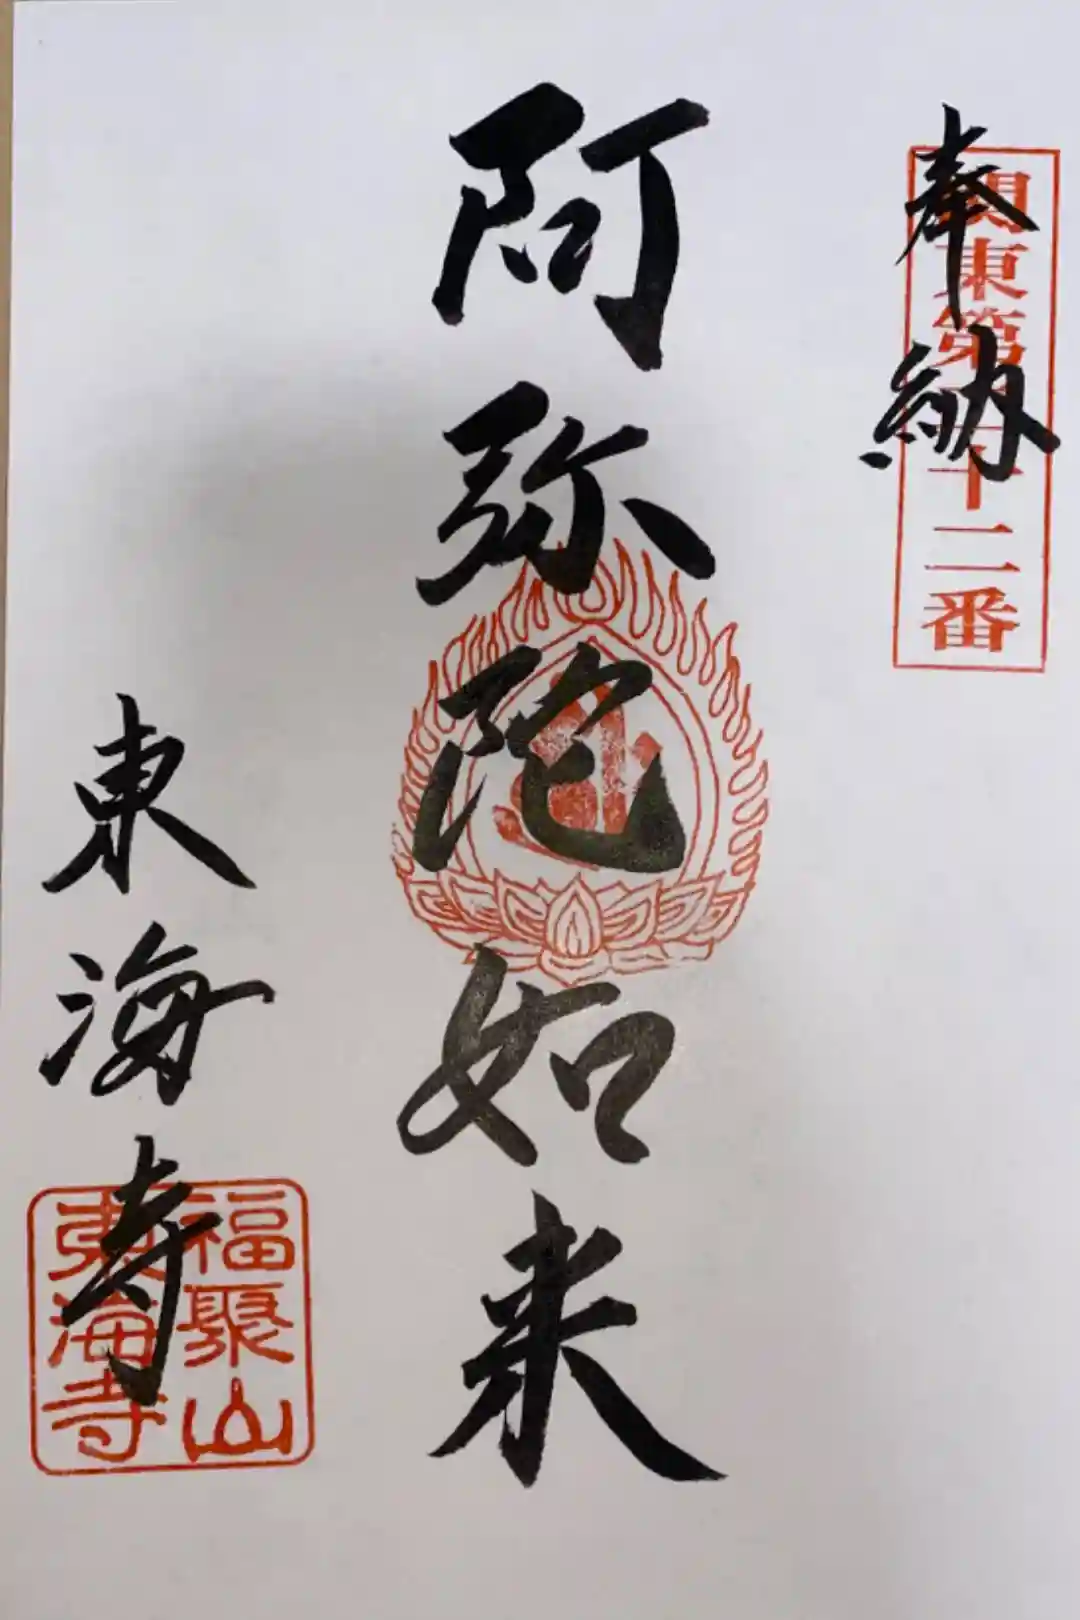 奉納
関東第 十二番
阿弥陀如来
東海寺
福聚山
東海寺